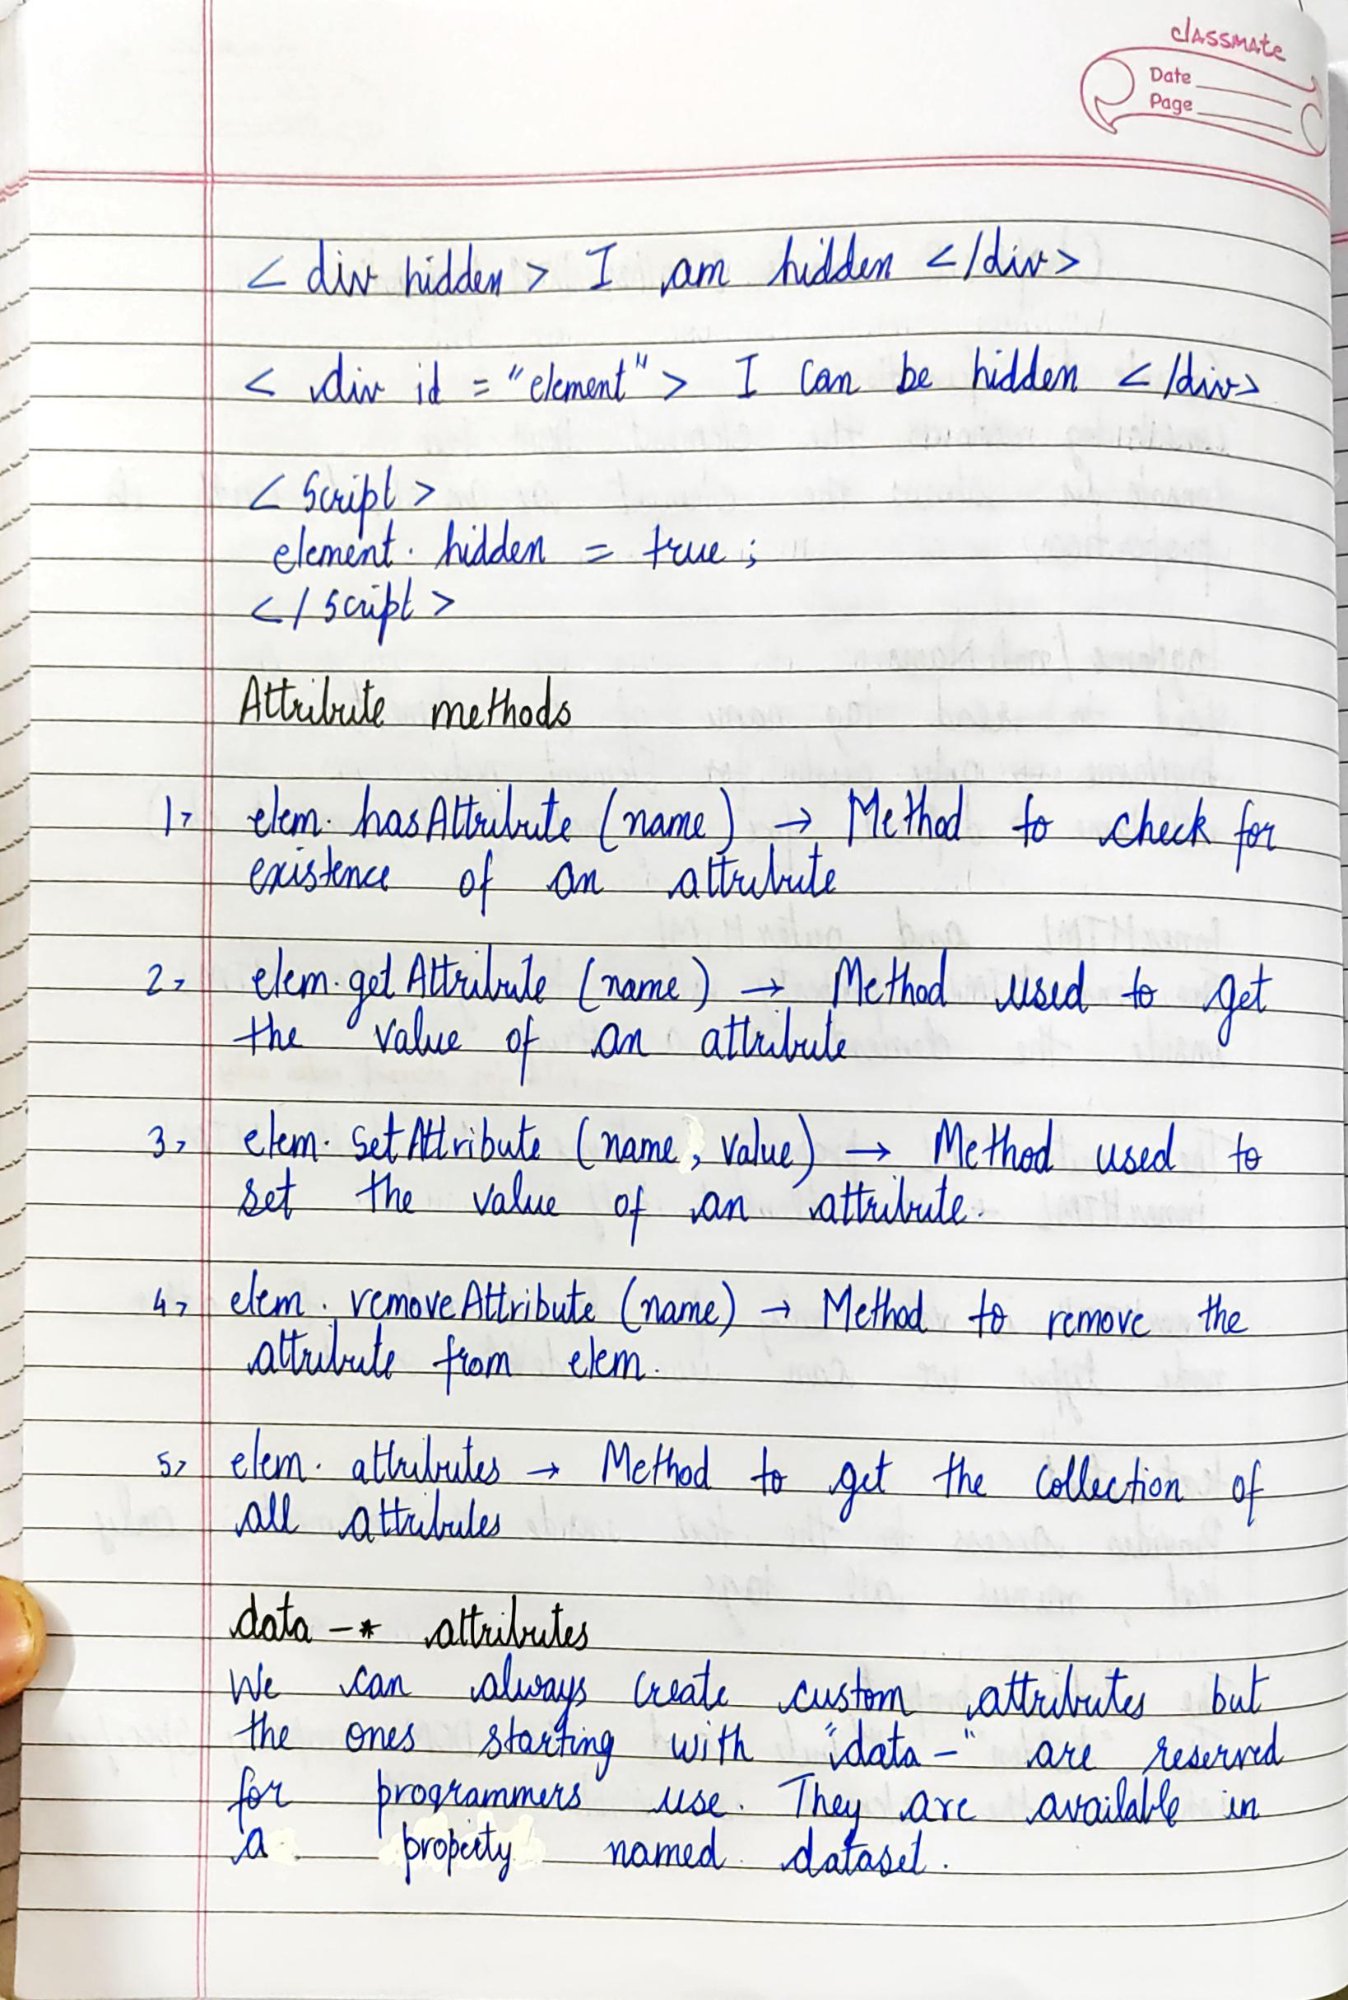 classmate
Date
Page
< div hidden > I am hidden </div>
< div id = "element" > I can be hidden </div>
< Script >
element. hidden = true ;
</ script >
Attribute methods
1> elem. hasAttribute (name) → Method to check for
existence of an attribute
2> elem. getAttribute (name) → Method used to get
the value of an attribute
3> elem. setAttribute (name, value) → Method used to
set the value of an attribute.
4> elem. removeAttribute (name) → Method to remove the
attribute from elem.
5> elem. attributes → Method to get the collection of
all attributes
data-* attributes
We can always create custom attributes but
the ones starting with "data-" are reserved
for programmers use. They are available in
a property named dataset.